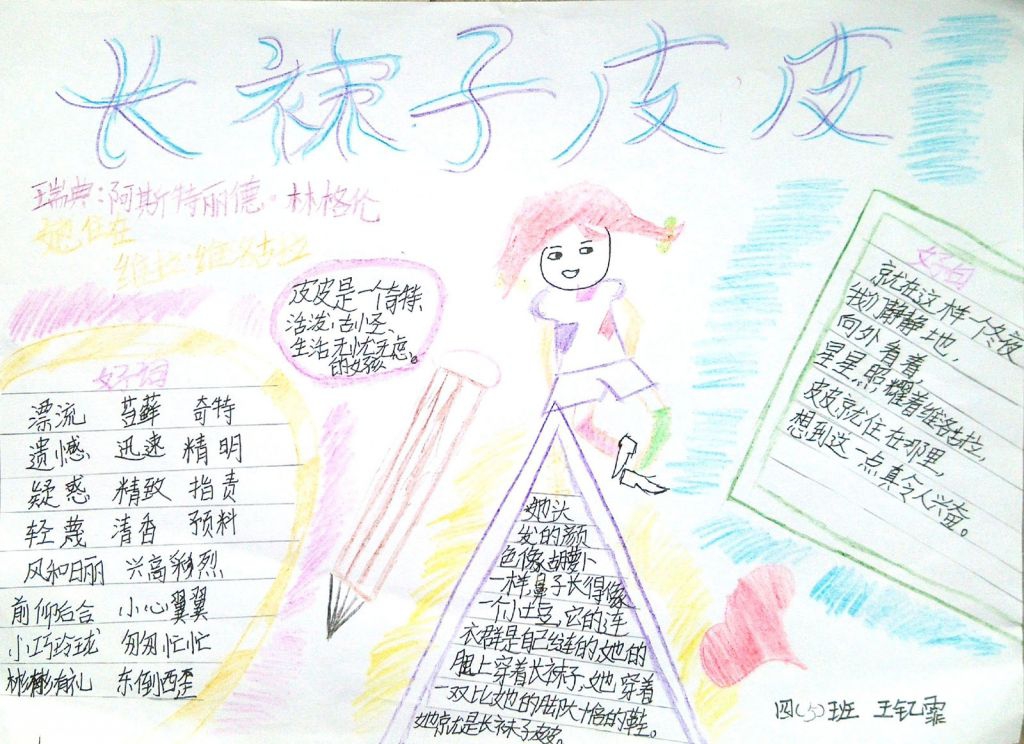 长袜子皮皮
瑞典:阿斯特丽德·林格伦
她住在
维拉·维洛拉
皮皮是一个奇特、
活泼、古怪、
生活无忧无虑
的女孩。
好词
漂流 苔藓 奇特
遗憾 迅速 精明
疑惑 精致 指责
轻蔑 清香 预料
风和日丽 兴高彩烈
前仰后合 小心翼翼
小巧玲珑 匆匆忙忙
彬彬有礼 东倒西歪
她头
发的颜
色像胡萝卜
一样鼻子长得像
一个小土豆,它的连
衣群是自己缝的她的
腿上穿着长袜子,她穿着
一双比她的脚大十倍的鞋。
她就是长袜子皮皮。
好句
就在这样一个冬夜
我们静静地,
向外看着
星星照耀着维洛拉,
皮皮就住在那里,
想到这一点真令人兴奋。
四(5)班 王钇霏